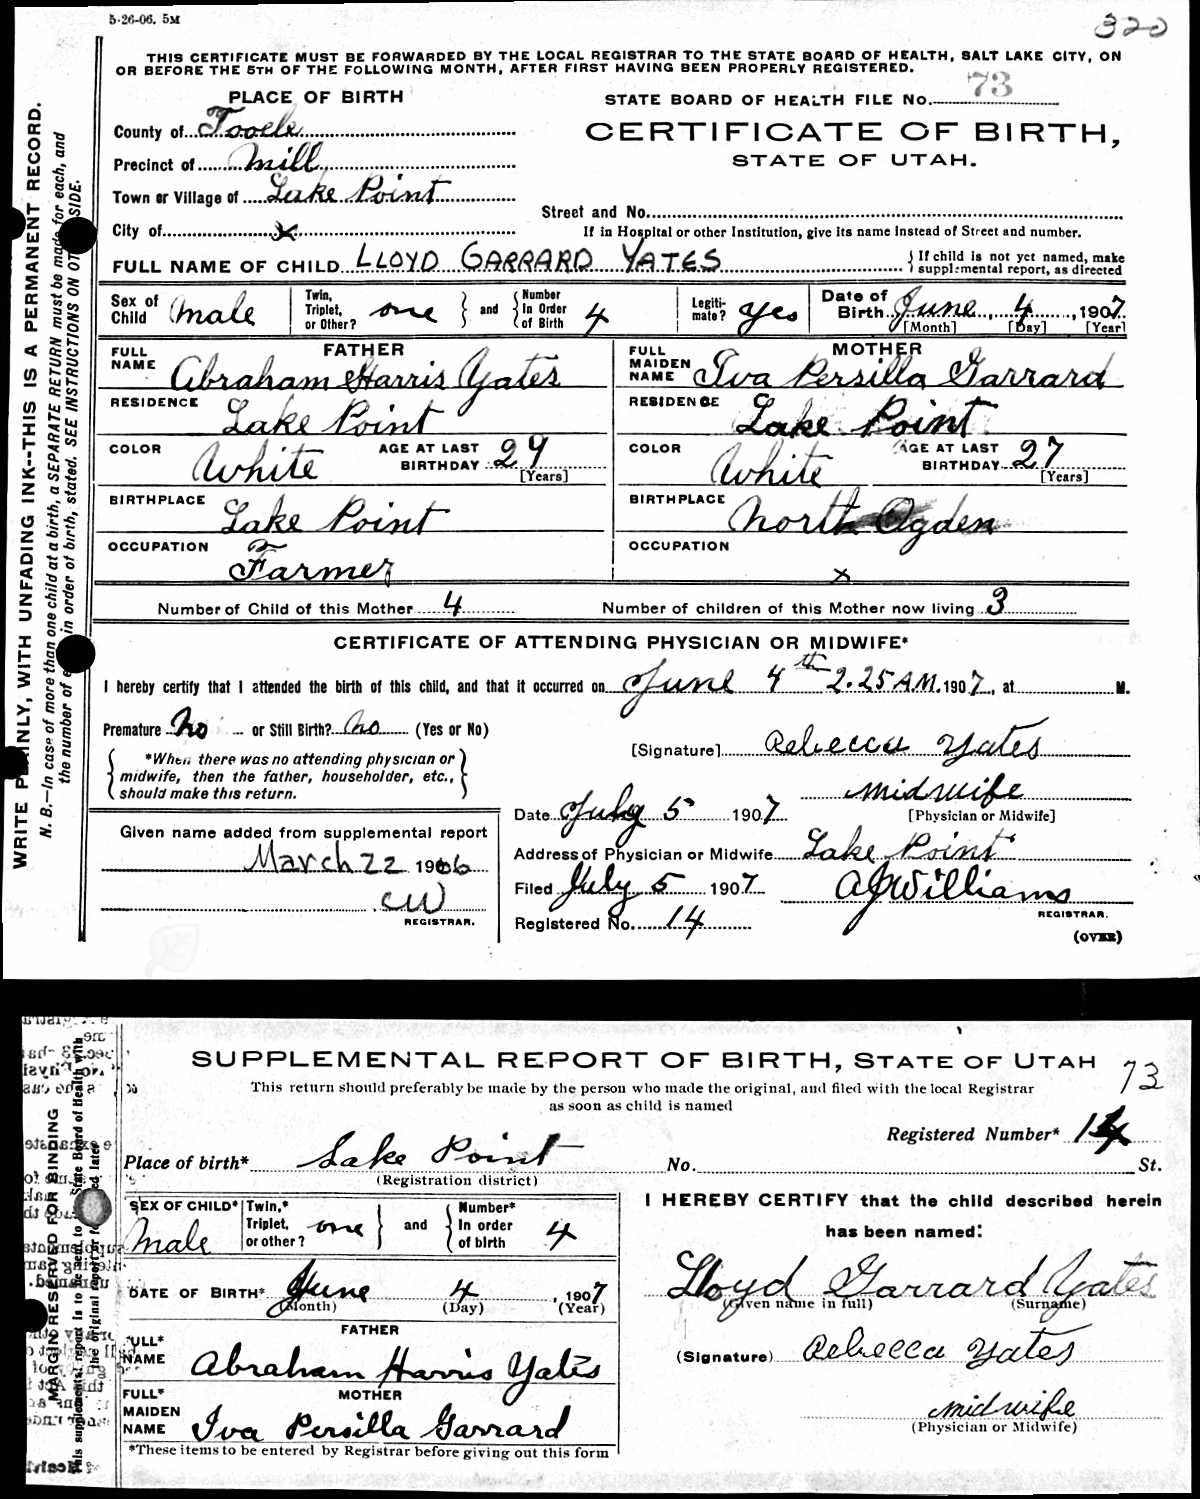 5-26-06. 5M
320
THIS CERTIFICATE MUST BE FORWARDED BY THE LOCAL REGISTRAR TO THE STATE BOARD OF HEALTH, SALT LAKE CITY, ON
OR BEFORE THE 5TH OF THE FOLLOWING MONTH, AFTER FIRST HAVING BEEN PROPERLY REGISTERED.
WRITE PLAINLY, WITH UNFADING INK--THIS IS A PERMANENT RECORD.
N. B.—In case of more than one child at a birth, a SEPARATE RETURN must be made for each, and
the number of in order of birth, stated. SEE INSTRUCTIONS ON SIDE.
PLACE OF BIRTH
STATE BOARD OF HEALTH FILE No. 73
County of Tooele
CERTIFICATE OF BIRTH,
Precinct of Mill
STATE OF UTAH.
Town or Village of Lake Point
Street and No.
City of x
If in Hospital or other Institution, give its name instead of Street and number.
FULL NAME OF CHILD LLOYD GARRARD YATES
If child is not yet named, make
supplemental report, as directed
Sex of Child Male
Twin, Triplet, or Other? one
and
Number In Order of Birth 4
Legiti-mate? Yes
Date of Birth June 4, 1907
[Month] [Day] [Year]
FATHER
FULL NAME Abraham Harris Yates
MOTHER
FULL MAIDEN NAME Iva Persilla Garrard
RESIDENCE Lake Point
RESIDENCE Lake Point
COLOR White AGE AT LAST BIRTHDAY 29 [Years]
COLOR White AGE AT LAST BIRTHDAY 27 [Years]
BIRTHPLACE Lake Point
BIRTHPLACE North Ogden
OCCUPATION Farmer
OCCUPATION x
Number of Child of this Mother 4
Number of children of this Mother now living 3
CERTIFICATE OF ATTENDING PHYSICIAN OR MIDWIFE*
I hereby certify that I attended the birth of this child, and that it occurred on June 4th 2.25 A.M. 1907, at M.
Premature No or Still Birth? No (Yes or No)
[Signature] Rebecca Yates
*When there was no attending physician or
midwife, then the father, householder, etc.,
should make this return.
midwife
[Physician or Midwife]
Date July 5 1907
Given name added from supplemental report
March 22 1966
CW
REGISTRAR.
Address of Physician or Midwife Lake Point
Filed July 5 1907
A J Williams
REGISTRAR.
Registered No. 14
(OVER)
SUPPLEMENTAL REPORT OF BIRTH, STATE OF UTAH 73
This return should preferably be made by the person who made the original, and filed with the local Registrar
as soon as child is named
MARGIN RESERVED FOR BINDING
Registered Number* 14
Place of birth* Lake Point
(Registration district)
No. St.
SEX OF CHILD* Male
Twin,* Triplet, or other? one
and
Number* In order of birth 4
I HEREBY CERTIFY that the child described herein
has been named:
DATE OF BIRTH* June 4, 1907
(Month) (Day) (Year)
Lloyd Garrard Yates
(Given name in full) (Surname)
FATHER
NAME Abraham Harris Yates
(Signature) Rebecca Yates
MOTHER
FULL* MAIDEN NAME Iva Persilla Garrard
midwife
(Physician or Midwife)
*These items to be entered by Registrar before giving out this form